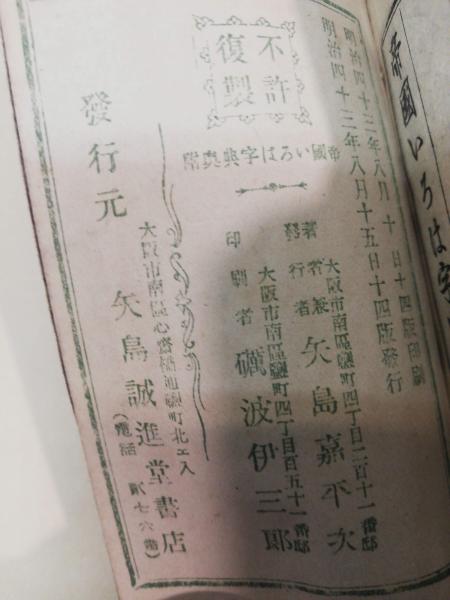 帝國いろは字
明治四十三年八月十日十四版印刷
明治四十三年八月十五日十四版發行
不許
復製
帝國いろは字典奥附
大阪市南區鹽町四丁目二百十一番邸
著者兼
發行者 矢島嘉平次
大阪市南區鹽町四丁目百五十一番邸
印刷者 礪波伊三郎
大阪市南區心齋橋通鹽町北ェ入
發行元 矢島誠進堂書店
(電話 貳七六番)